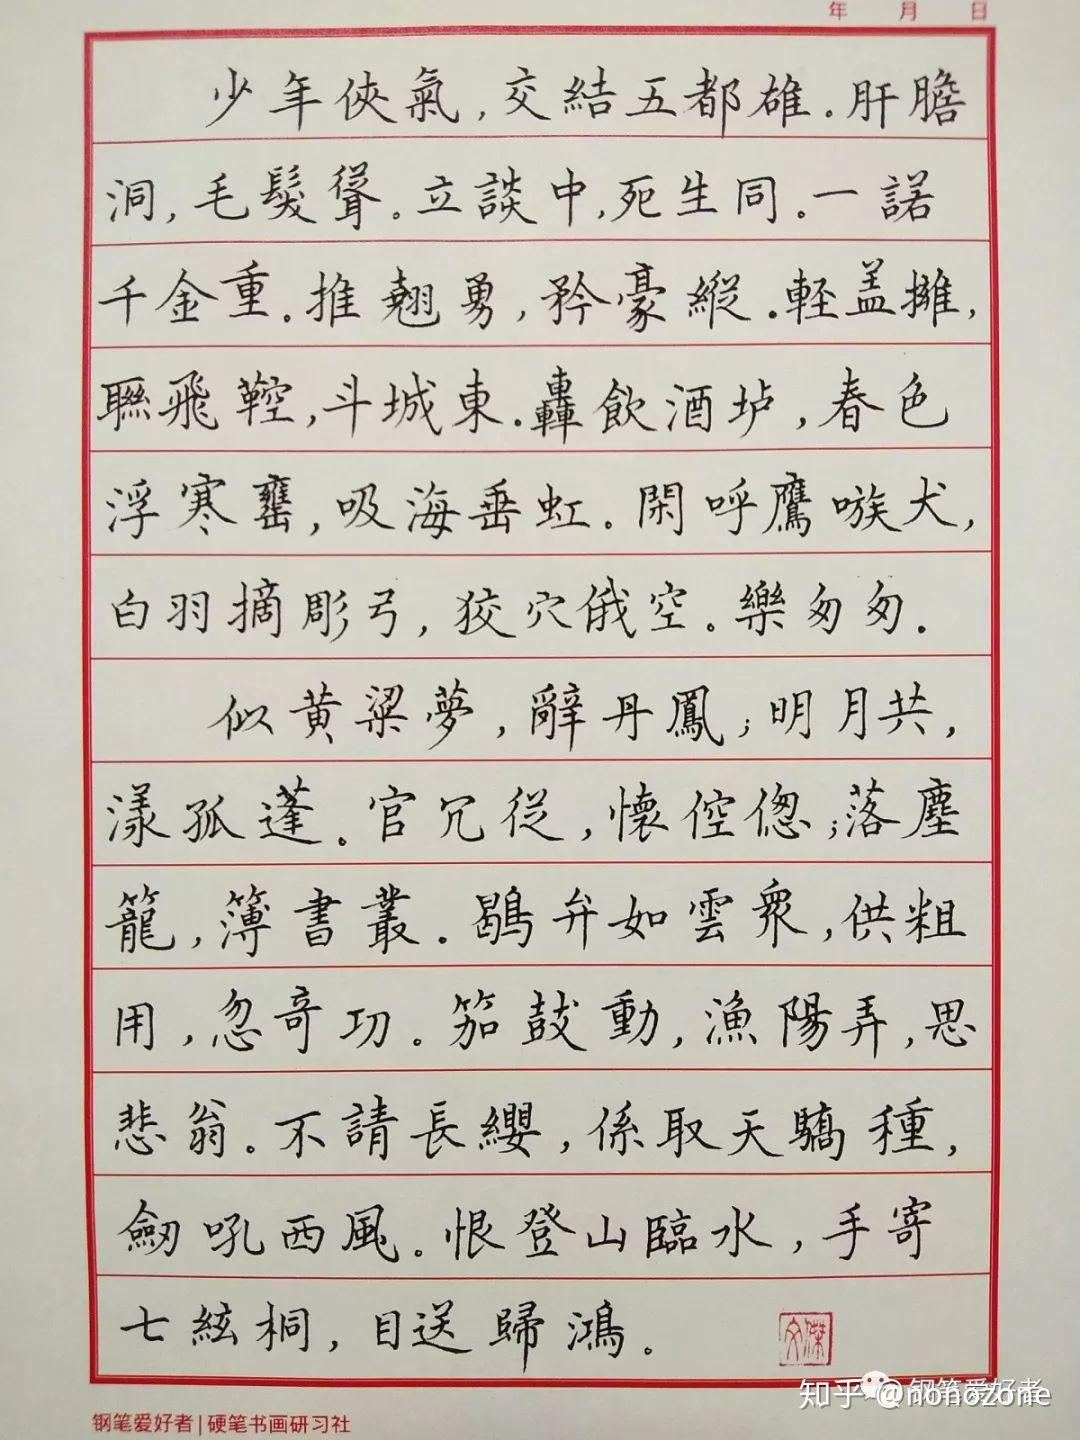 年 月 日
少年俠氣,交結五都雄.肝膽
洞,毛髮聳。立談中,死生同。一諾
千金重.推翹勇,矜豪縱.輕盖擁,
聯飛鞚,斗城東.轟飲酒垆,春色
浮寒甕,吸海垂虹.閑呼鷹嗾犬,
白羽摘彫弓,狡穴俄空。樂匆匆.
似黄粱夢,辭丹鳳;明月共,
漾孤蓬。官冗從,懷倥偬;落塵
籠,簿書叢.鶡弁如雲衆,供粗
用,忽奇功.笳鼓動,漁陽弄,思
悲翁。不請長纓,係取天驕種,
劒吼西風.恨登山臨水,手寄
七絃桐,目送歸鴻。
钢笔爱好者|硬笔书画研习社
钢笔爱好者
知乎 @nonozone